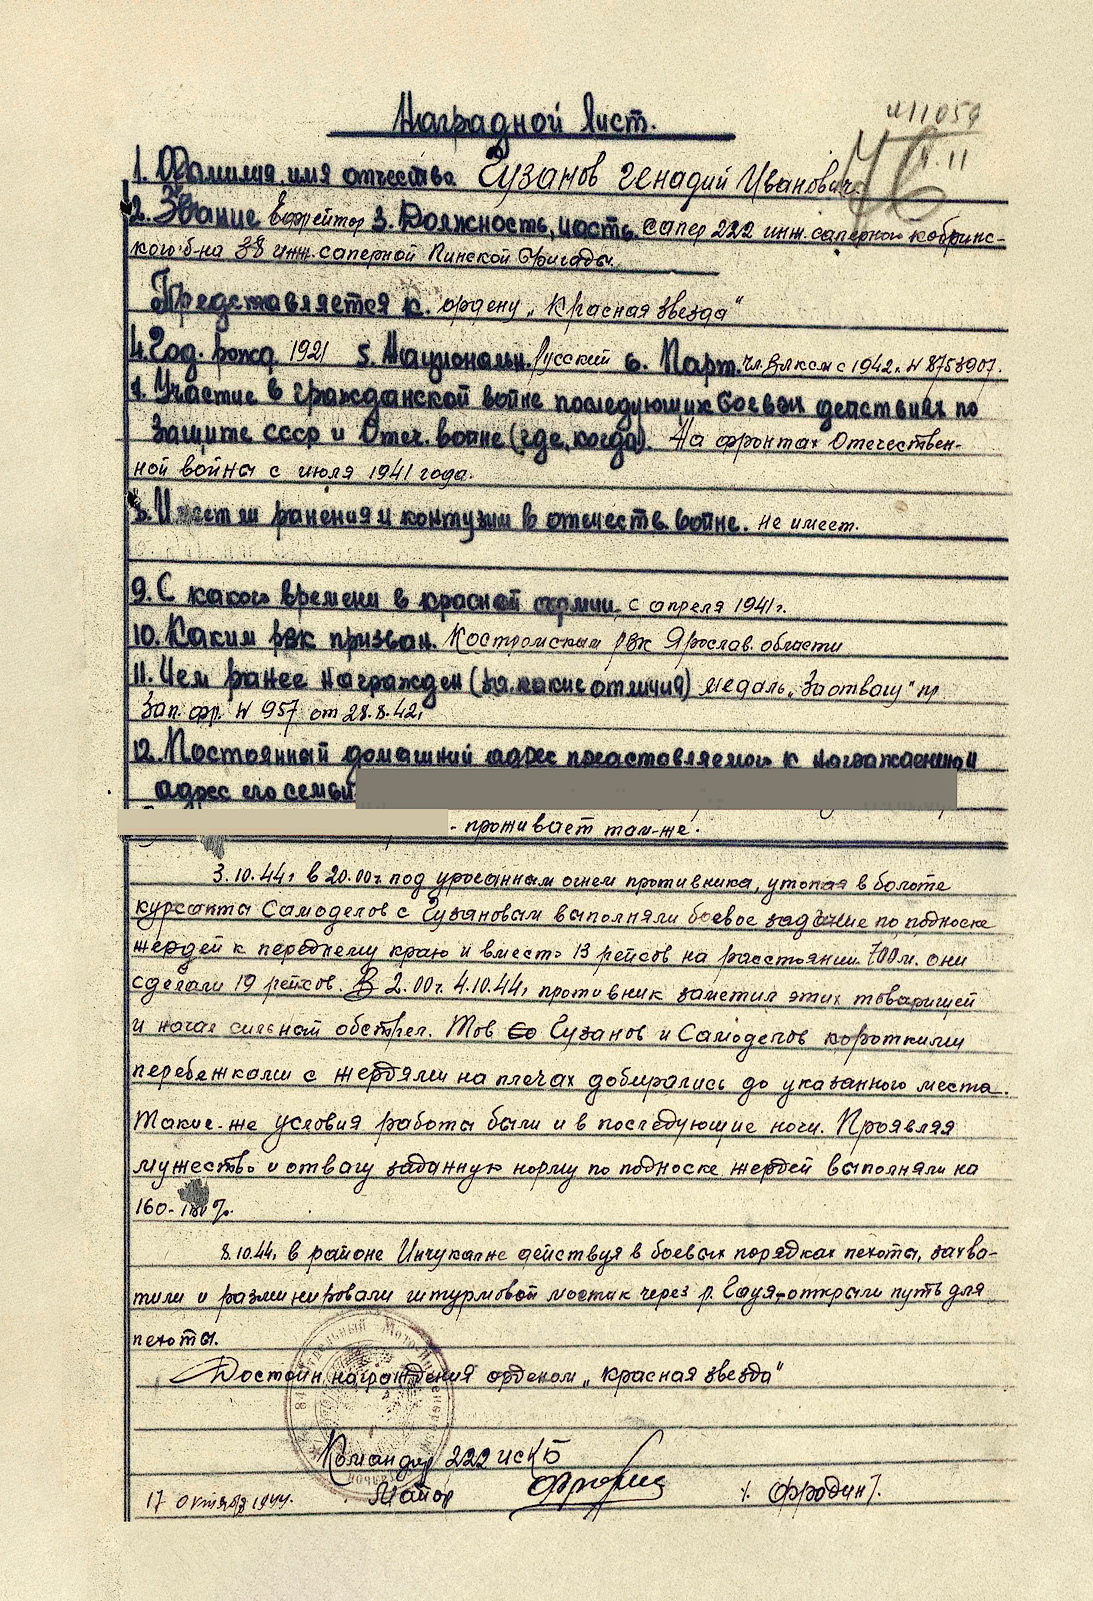 Наградной Лист.
1. Фамилия, имя отчество Гузанов Генадий Иванович
2. Звание Ефрейтор 3. Должность, часть. сапер 222 инж. саперного кобринс-
кого б-на 38 инж. саперной Пинской бригады.
Представляется к. ордену „Красная звезда"
4. Год. рожд. 1921 5. Национальн. Русский 6. Парт. чл. влксм с 1942г. №8758907.
7. Участие в гражданской войне последующих боевых действиях по
защите СССР и Отеч. войне (где, когда). На фронтах Отечествен-
ной войны с июля 1941 года.
8. Имеет ли ранения и контузии в отечеств. войне. не имеет.
9. С какого времени в красной армии с апреля 1941г.
10. Каким рвк призван. Костромским рвк Ярослав. области
11. Чем ранее награжден (за какие отличия) медаль „За отвагу" пр.
Зап. фр. № 957 от 28.8.42г
12. Постоянный домашний адрес представляемого к награждению и
адрес его семьи
- проживает там-же.
3.10.44г в 20.00ч. под ураганным огнем противника, утопая в болоте
курсанты Самоделов с Гузановым выполняли боевое задание по подноске
жердей к переднему краю и вместо 13 рейсов на расстоянии 700м. они
сделали 19 рейсов. В 2.00ч. 4.10.44г противник заметил этих товарищей
и начал сильный обстрел. Тов Гузанов и Самоделов короткими
перебежками с жердями на плечах добирались до указанного места.
Такие-же условия работы были и в последующие ночи. Проявляя
мужество и отвагу заданную норму по подноске жердей выполняли на
160-180%.
8.10.44г в районе Инчукалне действуя в боевых порядках пехоты, захва-
тили и разминировали штурмовой мостик через р. Гауя-открыли путь для
пехоты.
Достоин награждения орденом „Красная звезда"
Командир 222 ИСКБ
17 Октября 1944г. Майор /. Фродин/.